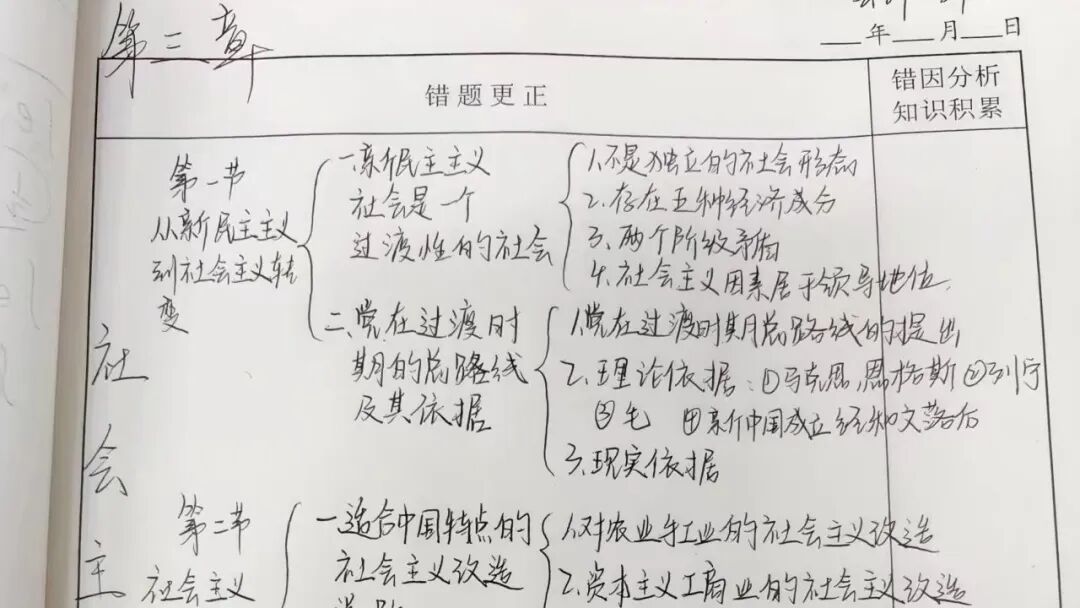 第三章
年 月 日
错题更正
错因分析
知识积累
第一节
从新民主主义
到社会主义转
变
一.新民主主义
社会是一个
过渡性的社会
1.不是独立的社会形态
2.存在五种经济成分
3.两个阶级矛盾
4.社会主义因素居于领导地位.
二.党在过渡时
期的总路线
及其依据
1.党在过渡时期总路线的提出
2.理论依据:①马克思,恩格斯②列宁
③毛 ④新中国成立经和文落后
3.现实依据
社
会
主
第二节
社会主义
一.适合中国特点的
社会主义改造
1.对农业手工业的社会主义改造
2.资本主义工商业的社会主义改造